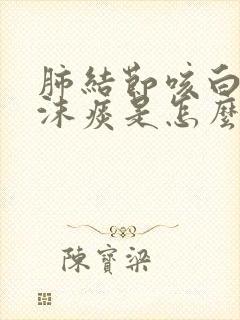 肺結節咳白
沫痰是怎麼
陳寶梁